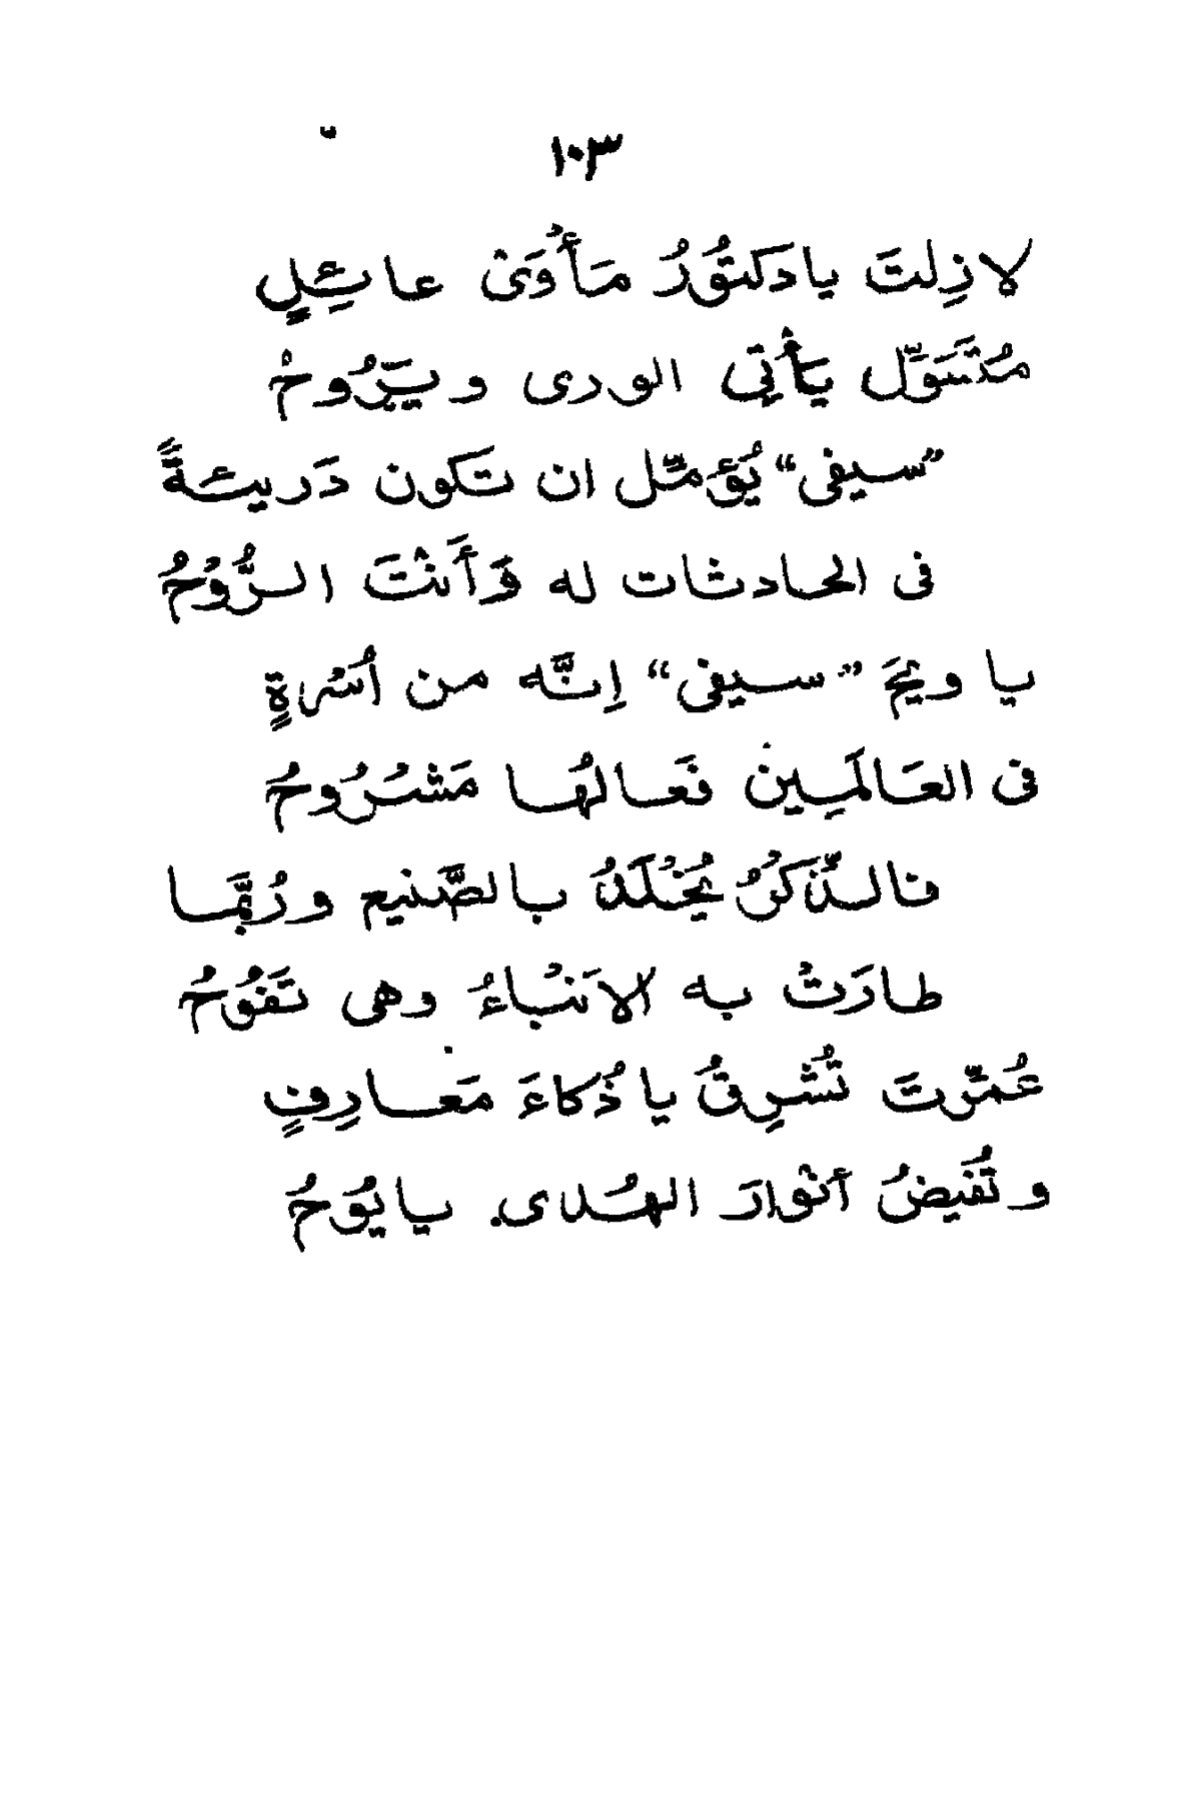 ١٠٣
لا زِلتَ يا دكتوُرُ مَأْوَىْ عائِلٍ
مُتَسَوِّل يَأْتِى الورى ويَرُوحْ
"سيفى" يُؤمِّل ان تَكون دَريئةً
فى الحادثات له وَأَنْتَ الرُّوْحُ
يا ويحَ "سيفى" اِنَّه من اُسْرةٍ
فى العَالَمِين فَعَالهُا مَشْرُوحُ
فالذِّكرُ يُخْلَدُ بالصَّنيع ورُبَّما
طارَتْ به الانْباءُ وهى تَفُوحُ
عُمِّرتَ تُشْرِقُ يا ذُكاءَ مَعارِفٍ
وتُفيضُ أنْوارَ الهُدى. يا يُوَحُ